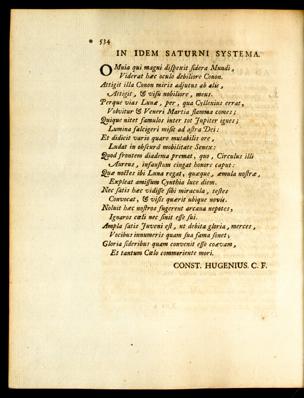 * 534
IN IDEM SATURNI SYSTEMA.
OMnia qui magni dispexit sidera Mundi,
Viderat hæc oculo debiliore Conon.
Attigit illa Conon miris adjutus ab alis,
Attigit, & visu nobiliore, meus.
Perque vias Lunæ, per, qua Cyllenius errat,
Volvitur & Veneri Martia flamma comes;
Quique nitet famulos inter tot Jupiter ignes;
Lumina falcigeri misit ad astra Dei:
Et didicit vario quare mutabilis ore,
Ludat in obscura mobilitate Senex:
Quod frontem diadema premat, quo, Circulus illi
Aureus, infaustum cingat honore caput:
Quæ noctes ibi Luna regat, quæque, æmula nostræ,
Expleat amissum Cynthia luce diem.
Nec satis hæc vidisse sibi miracula, testes
Convocat, & visus quærit ubique novie.
Noluit hæc nostros sugerent arcana nepotes,
Ignaros cœli nec sinit esse sui.
Ampla satis Juveni est, ut debita gloria, merces,
Vocibus innumeris quam sua fama sinet;
Gloria sideribus quam convenit esse coævam,
Et tantum Cœlo commoriente mori.
CONST. HUGENIUS. C. F.